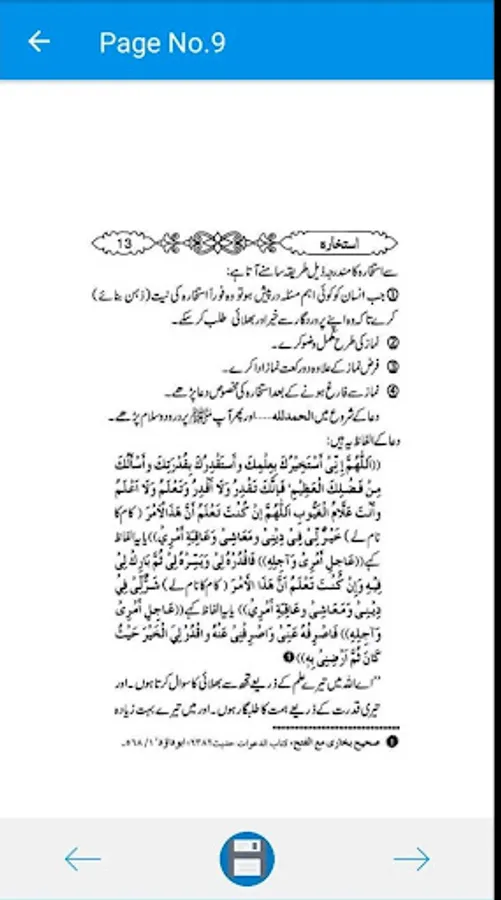 Page No.9
استخارہ 13
سے استخارہ کا مندرجہ ذیل طریقہ سامنے آتا ہے:
① جب انسان کو کوئی اہم مسئلہ درپیش ہو تو وہ فوراً استخارہ کی نیت (ذہن بنائے)
کرے تاکہ وہ اپنے پروردگار سے خیر اور بھلائی طلب کر سکے۔
② نماز کی طرح مکمل وضو کرے۔
③ فرض نماز کے علاوہ دو رکعت نماز ادا کرے۔
④ نماز سے فارغ ہونے کے بعد استخارہ کی مخصوص دعا پڑھے۔
دعا کے شروع میں الحمدللہ.... اور پھر آپ ﷺ پر درود و سلام پڑھے۔
دعا کے الفاظ یہ ہیں:
((اَللّٰهُمَّ إِنِّىْ أَسْتَخِيْرُكَ بِعِلْمِكَ وَأَسْتَقْدِرُكَ بِقُدْرَتِكَ وَأَسْأَلُكَ
مِنْ فَضْلِكَ الْعَظِيْمِ، فَإِنَّكَ تَقْدِرُ وَلَا أَقْدِرُ وَتَعْلَمُ وَلَا أَعْلَمُ
وَأَنْتَ عَلَّامُ الْغُيُوْبِ اَللّٰهُمَّ إِنْ كُنْتَ تَعْلَمُ أَنَّ هٰذَا الْأَمْرَ (کام کا
نام لے) خَيْرٌ لِّىْ فِىْ دِيْنِىْ وَمَعَاشِىْ وَعَاقِبَةِ أَمْرِىْ)) یا یہ الفاظ
کہے ((عَاجِلِ أَمْرِىْ وَآجِلِهِ)) فَاقْدُرْهُ لِىْ وَيَسِّرْهُ لِىْ ثُمَّ بَارِكْ لِىْ
فِيْهِ وَإِنْ كُنْتَ تَعْلَمُ أَنَّ هٰذَا الْأَمْرَ (کام کا نام لے) شَرٌّ لِّىْ فِىْ
دِيْنِىْ وَمَعَاشِىْ وَعَاقِبَةِ أَمْرِىْ)) یا یہ الفاظ کہے ((عَاجِلِ أَمْرِىْ
وَآجِلِهِ)) فَاصْرِفْهُ عَنِّىْ وَاصْرِفْنِىْ عَنْهُ وَاقْدُرْ لِىَ الْخَيْرَ حَيْثُ
كَانَ ثُمَّ أَرْضِنِىْ بِهِ)) ❶
”اے اللہ میں تیرے علم کے ذریعے تجھ سے بھلائی کا سوال کرتا ہوں۔ اور
تیری قدرت کے ذریعے ہمت کا طلبگار ہوں۔ اور میں تیرے بہت زیادہ
❶ صحیح بخاری مع الفتح، کتاب الدعوات حدیث ٦٣٨٢، ابوداؤد ١/٥٦٨۔